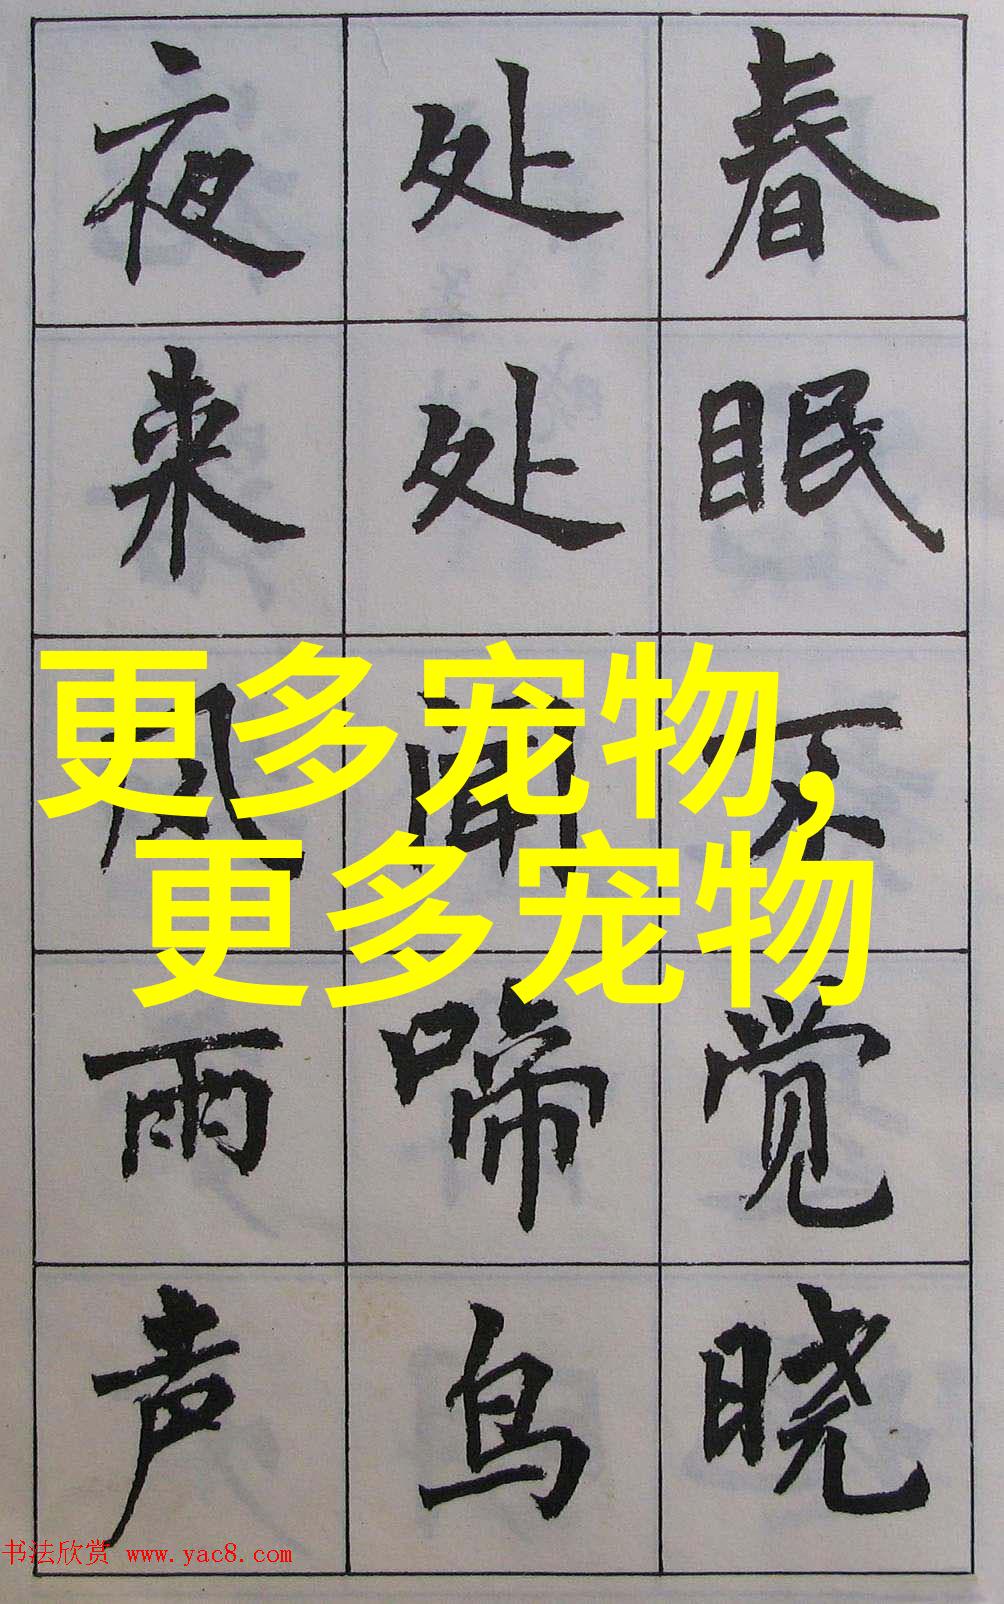 春眠不觉晓
处处闻啼鸟
夜来风雨声
更多宠物,
更多宠物
书法欣赏 www.yac8.com